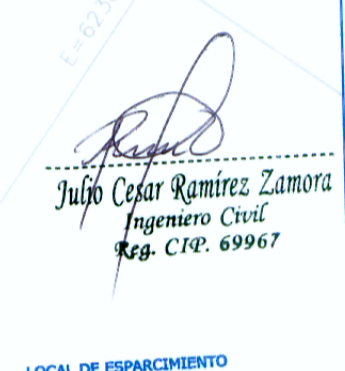 E= 623
Julio Cesar Ramírez Zamora
Ingeniero Civil
Reg. CIP. 69967
LOCAL DE ESPARCIMIENTO